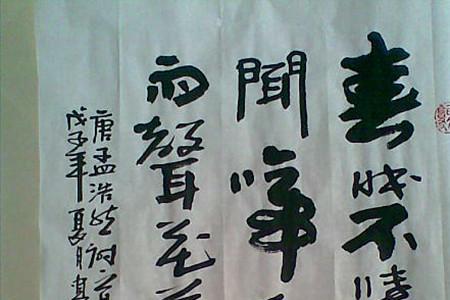 春眠不
聞啼
雨聲花
唐孟浩然詩
戊子年夏月